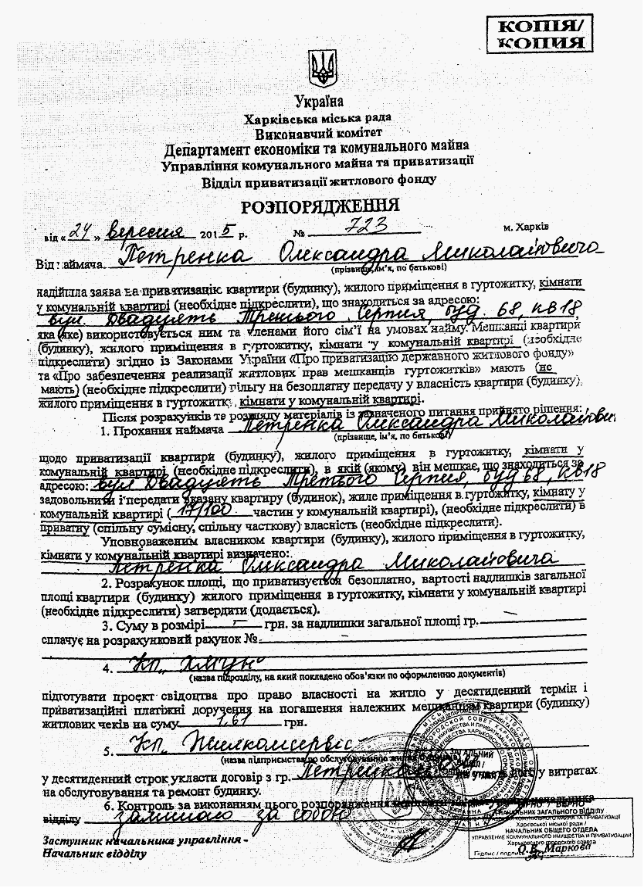 КОПІЯ/
КОПИЯ
Україна
Харківська міська рада
Виконавчий комітет
Департамент економіки та комунального майна
Управління комунального майна та приватизації
Відділ приватизації житлового фонду
РОЗПОРЯДЖЕННЯ
від «24» вересня 2015 р. № 723 м. Харків
Від наймача Петренка Олександра Миколайовича
(прізвище, ім'я, по батькові)
надійшла заява на приватизацію: квартири (будинку), жилого приміщення в гуртожитку, кімнати
у комунальній квартирі (необхідне підкреслити), що знаходиться за адресою:
вул. Двадцять Третього Серпня буд. 68, кв 18,
яка (яке) використовується ним та членами його сім'ї на умовах найму. Мешканці квартири
(будинку), жилого приміщення в гуртожитку, кімнати у комунальній квартирі (необхідне
підкреслити) згідно із Законами України «Про приватизацію державного житлового фонду»
та «Про забезпечення реалізації житлових прав мешканців гуртожитків» мають (не
мають) (необхідне підкреслити) пільгу на безоплатну передачу у власність квартири (будинку),
жилого приміщення в гуртожитку, кімнати у комунальній квартирі.
Після розрахунків та розгляду матеріалів із зазначеного питання прийнято рішення:
1. Прохання наймача Петренка Олександра Миколайови
(прізвище, ім'я, по батькові)
щодо приватизації квартири (будинку), жилого приміщення в гуртожитку, кімнати у
комунальній квартирі, (необхідне підкреслити), в якій (якому) він мешкає, що знаходиться за
адресою: вул Двадцять Третього Серпня, буд 68, кв 18
задовольнити і передати вказану квартиру (будинок), жиле приміщення в гуртожитку, кімнату у
комунальній квартирі (17/100 частин у комунальній квартирі), (необхідне підкреслити) в
приватну (спільну сумісну, спільну часткову) власність (необхідне підкреслити).
Уповноваженим власником квартири (будинку), жилого приміщення в гуртожитку,
кімнати у комунальній квартирі визначено:
Петренка Олександра Миколайовича
2. Розрахунок площі, що приватизується безоплатно, вартості надлишків загальної
площі квартири (будинку) жилого приміщення в гуртожитку, кімнати у комунальній квартирі
(необхідне підкреслити) затвердити (додається).
3. Суму в розмірі – грн. за надлишки загальної площі гр.
сплачує на розрахунковий рахунок №
4. КП „ХМЦУН“
(назва підрозділу, на який покладено обов'язки по оформленню документів)
підготувати проєкт свідоцтва про право власності на житло у десятиденний термін і
приватизаційні платіжні доручення на погашення належних мешканцям квартири (будинку)
житлових чеків на суму 1,61 грн.
5. КП „Жилкомсервіс
(назва підприємства по обслуговуванню
у десятиденний строк укласти договір з гр. Петренком участь його у витратах
на обслуговування та ремонт будинку.
6. Контроль за виконанням цього розпорядження
відділу залишаю за собою
Заступник начальника управління -
Начальник відділу
НАЧАЛЬНИК ЗАГАЛЬНОГО ВІДДІЛУ
Харківської міської ради /
НАЧАЛЬНИК ОБЩЕГО ОТДЕЛА
УПРАВЛЕНИЕ КОММУНАЛЬНОГО ИМУЩЕСТВА И ПРИВАТИЗАЦИИ
Харьковского городского совета
О.В. Маркова